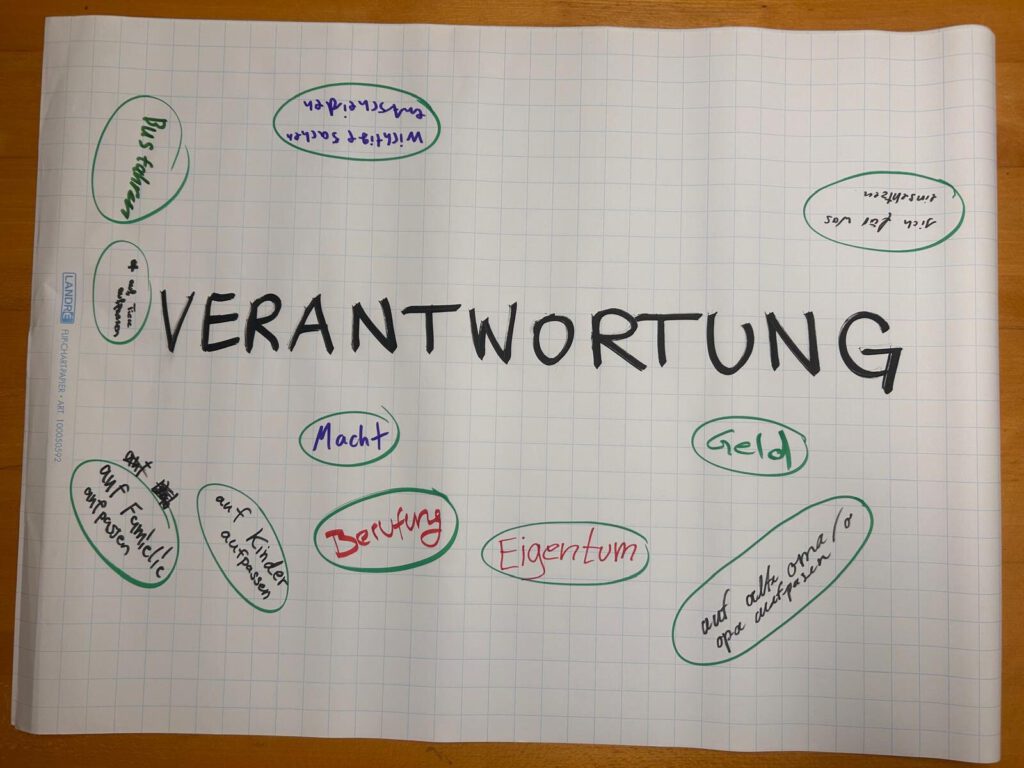 wichtige sachen
entscheiden
Bus fahren
sich für was
einsetzen
auf Tiere
aufpassen
VERANTWORTUNG
LANDRÉ
FLIPCHART-PAPIER • ART. 100050592
Macht
Geld
auf
auf Familie
aufpassen
auf Kinder
aufpassen
Berufung
Eigentum
auf alte oma/
opa aufpasen